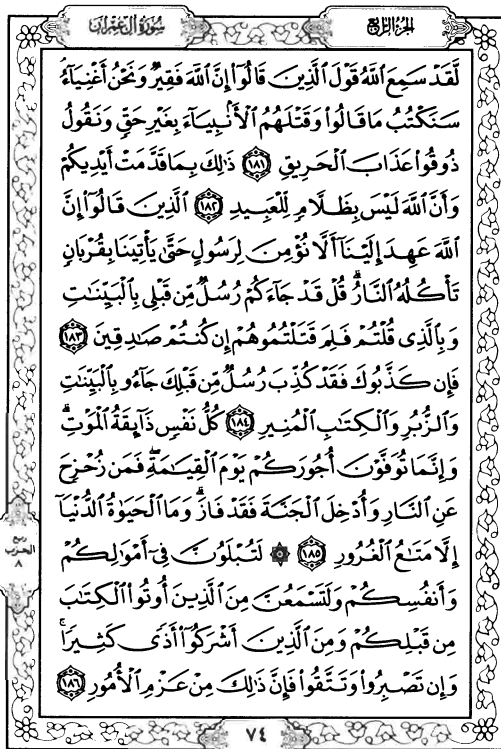 سُورَةُ آلِ عِمْرَان
الجُزْءُ الرَّابِعُ
لَّقَدْ سَمِعَ اللَّهُ قَوْلَ الَّذِينَ قَالُوٓا۟ إِنَّ اللَّهَ فَقِيرٌ وَنَحْنُ أَغْنِيَآءُ
سَنَكْتُبُ مَا قَالُوا۟ وَقَتْلَهُمُ الْأَنۢبِيَآءَ بِغَيْرِ حَقٍّ وَنَقُولُ
ذُوقُوا۟ عَذَابَ الْحَرِيقِ ١٨١ ذَٰلِكَ بِمَا قَدَّمَتْ أَيْدِيكُمْ
وَأَنَّ اللَّهَ لَيْسَ بِظَلَّامٍ لِّلْعَبِيدِ ١٨٢ الَّذِينَ قَالُوٓا۟ إِنَّ
اللَّهَ عَهِدَ إِلَيْنَآ أَلَّا نُؤْمِنَ لِرَسُولٍ حَتَّىٰ يَأْتِيَنَا بِقُرْبَانٍ
تَأْكُلُهُ النَّارُ ۗ قُلْ قَدْ جَآءَكُمْ رُسُلٌ مِّن قَبْلِى بِالْبَيِّنَٰتِ
وَبِالَّذِى قُلْتُمْ فَلِمَ قَتَلْتُمُوهُمْ إِن كُنتُمْ صَٰدِقِينَ ١٨٣
فَإِن كَذَّبُوكَ فَقَدْ كُذِّبَ رُسُلٌ مِّن قَبْلِكَ جَآءُو بِالْبَيِّنَٰتِ
وَالزُّبُرِ وَالْكِتَٰبِ الْمُنِيرِ ١٨٤ كُلُّ نَفْسٍ ذَآئِقَةُ الْمَوْتِ ۗ
وَإِنَّمَا تُوَفَّوْنَ أُجُورَكُمْ يَوْمَ الْقِيَٰمَةِ ۖ فَمَن زُحْزِحَ
عَنِ النَّارِ وَأُدْخِلَ الْجَنَّةَ فَقَدْ فَازَ ۗ وَمَا الْحَيَوٰةُ الدُّنْيَآ
إِلَّا مَتَٰعُ الْغُرُورِ ١٨٥ ۞ لَتُبْلَوُنَّ فِىٓ أَمْوَٰلِكُمْ
وَأَنفُسِكُمْ وَلَتَسْمَعُنَّ مِنَ الَّذِينَ أُوتُوا۟ الْكِتَٰبَ
مِن قَبْلِكُمْ وَمِنَ الَّذِينَ أَشْرَكُوٓا۟ أَذًى كَثِيرًا ۚ
وَإِن تَصْبِرُوا۟ وَتَتَّقُوا۟ فَإِنَّ ذَٰلِكَ مِنْ عَزْمِ الْأُمُورِ ١٨٦
ربع
الحزب
٨
٧٤